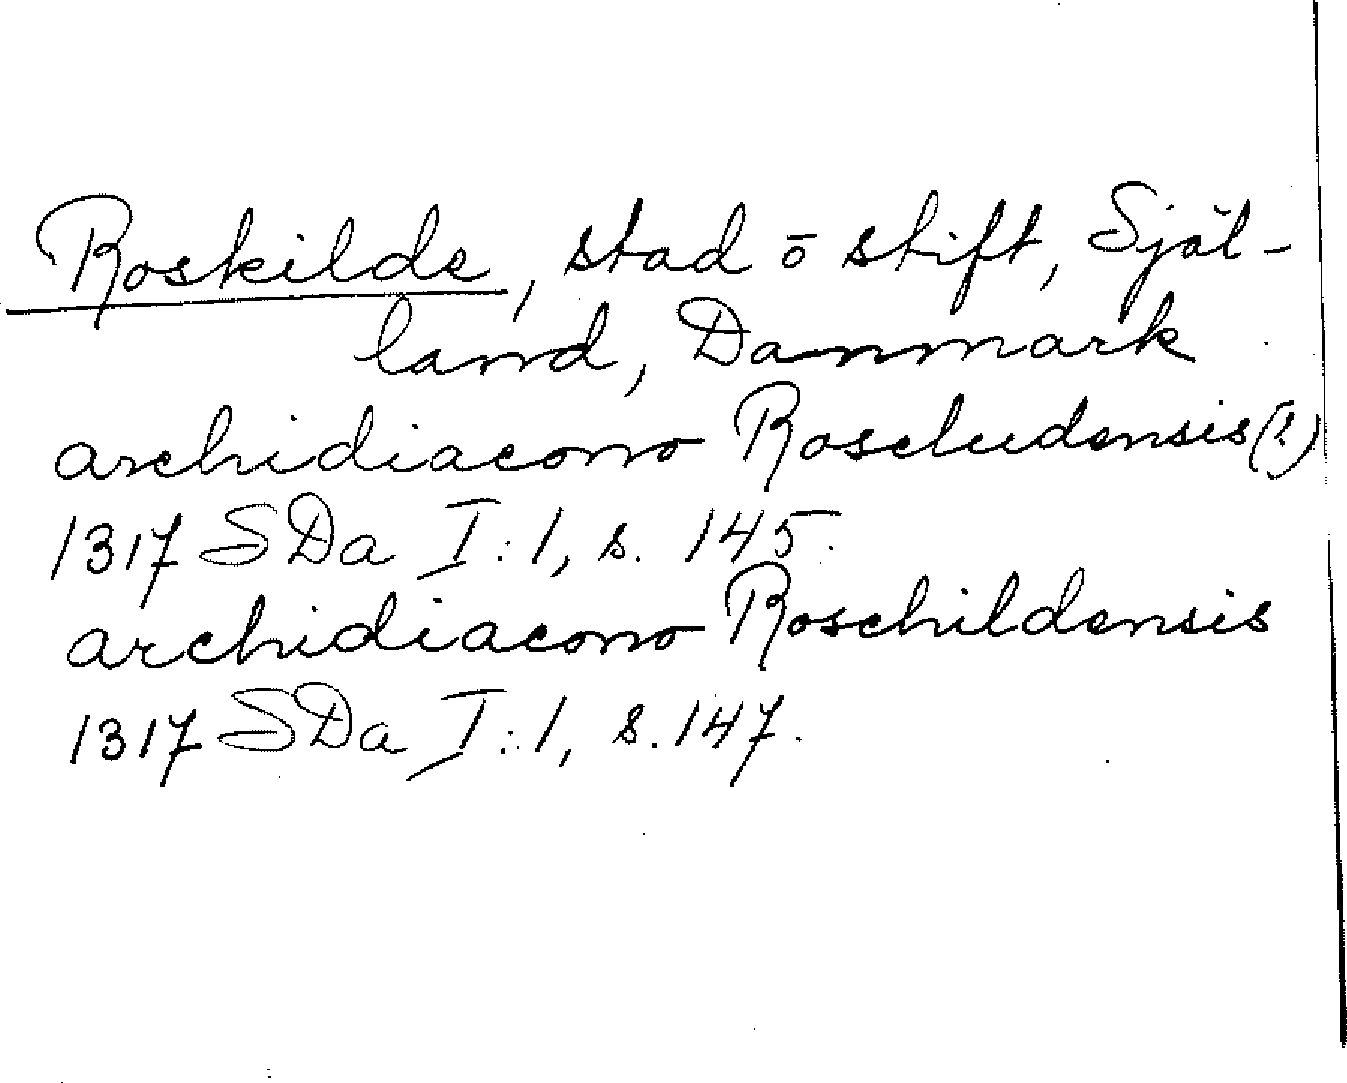 Roskilde, stad ō stift, Själ-
land, Danmark
archidiacono Roscludensis (!)
1317 SDa I:1, s. 145.
archidiacono Roschildensis
1317 SDa I:1, s. 147.